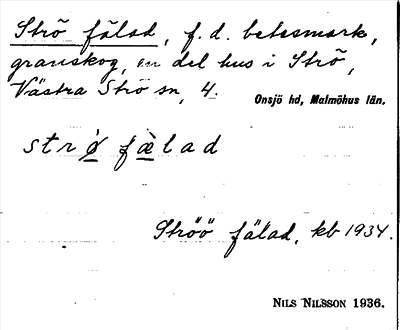 Strö fälad, f.d. betesmark,
granskog, en del hus i Strö,
Västra Strö sn, 4.
Onsjö hd, Malmöhus län.
strø̀ fælad
Ströö fälad, kb 1934.
NILS NILSSON 1936.